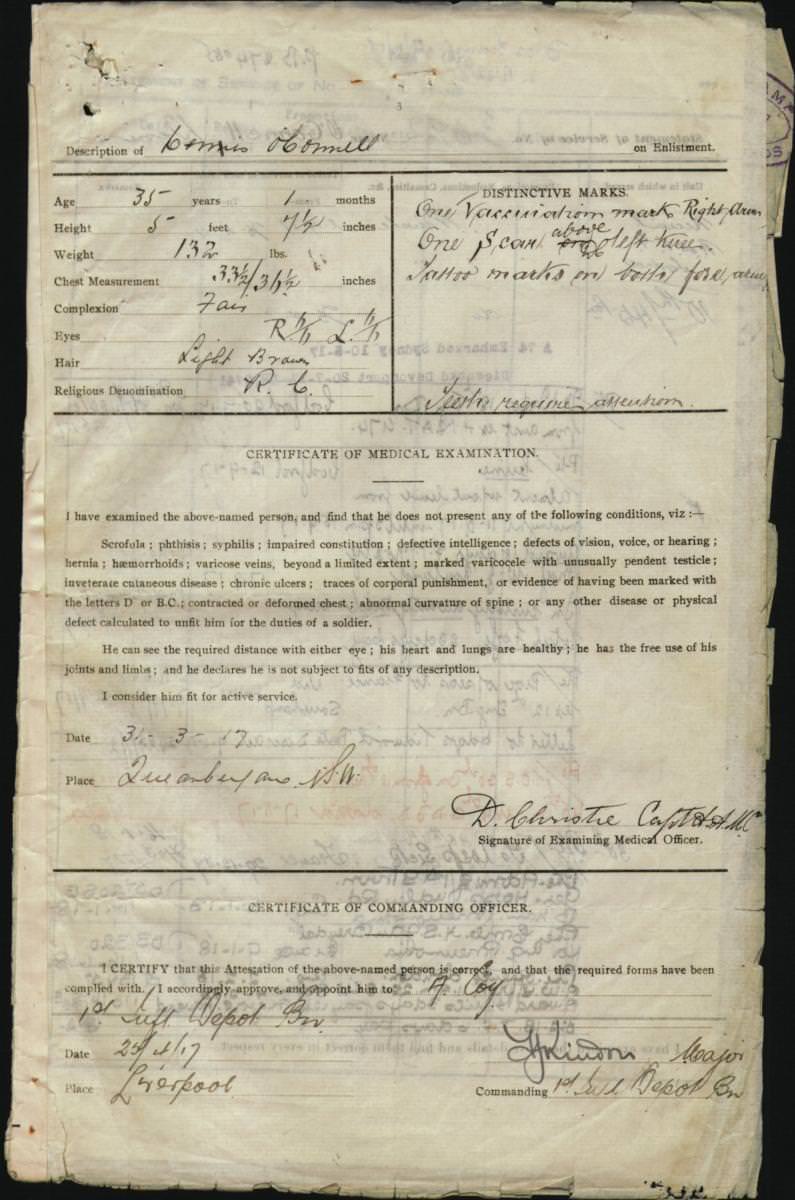 3
Description of Dennis O'Connell on Enlistment.
Age 35 years 1 months
Height 5 feet 7½ inches
Weight 132 lbs.
Chest Measurement 33½/36½ inches
Complexion Fair
Eyes R 6/6 L. 6/6
Hair Light Brown
Religious Denomination R. C.
DISTINCTIVE MARKS.
One Vaccination mark Right Arm
One Scar above left knee.
Tattoo marks on both fore arms
Teeth require attention.
CERTIFICATE OF MEDICAL EXAMINATION.
I have examined the above-named person, and find that he does not present any of the following conditions, viz :—
Scrofula ; phthisis ; syphilis ; impaired constitution ; defective intelligence ; defects of vision, voice, or hearing ;
hernia ; hæmorrhoids ; varicose veins, beyond a limited extent ; marked varicocele with unusually pendent testicle ;
inveterate cutaneous disease ; chronic ulcers ; traces of corporal punishment, or evidence of having been marked with
the letters D or B.C. ; contracted or deformed chest ; abnormal curvature of spine ; or any other disease or physical
defect calculated to unfit him for the duties of a soldier.
He can see the required distance with either eye ; his heart and lungs are healthy ; he has the free use of his
joints and limbs ; and he declares he is not subject to fits of any description.
I consider him fit for active service.
Date 31-3-17
Place Queanbeyan N.S.W.
D. Christie Capt A.A.M.C
Signature of Examining Medical Officer.
CERTIFICATE OF COMMANDING OFFICER.
I CERTIFY that this Attestation of the above-named person is correct, and that the required forms have been
complied with. I accordingly approve, and appoint him to A. Coy
1st Inft Depot Bn.
Date 25/4/17
Kindon Major
Place Liverpool
Commanding 1st Inft Depot Bn